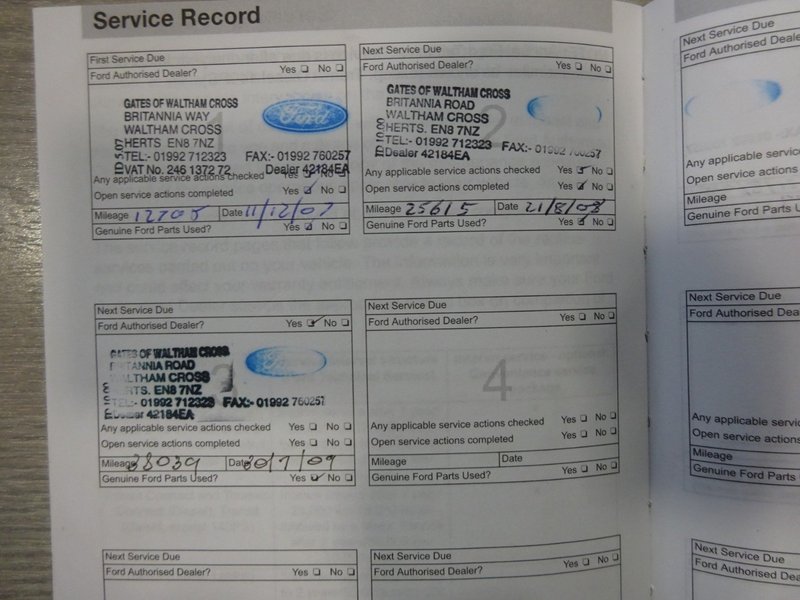 Service Record
First Service Due
Ford Authorised Dealer? Yes No
GATES OF WALTHAM CROSS
BRITANNIA WAY
WALTHAM CROSS
HERTS. EN8 7NZ
TEL:- 01992 712323 FAX:- 01992 760257
VAT No. 246 1372 72 Dealer 42184EA
Ford
Any applicable service actions checked Yes No
Open service actions completed Yes No
Mileage 12705 Date 11/12/07
Genuine Ford Parts Used? Yes No
Next Service Due
Ford Authorised Dealer? Yes No
2
GATES OF WALTHAM CROSS
BRITANNIA ROAD
WALTHAM CROSS
HERTS. EN8 7NZ
TEL:- 01992 712323 FAX:- 01992 760257
Dealer 42184EA
Any applicable service actions checked Yes No
Open service actions completed Yes No
Mileage 25615 Date 21/8/08
Genuine Ford Parts Used? Yes No
Next Service Due
Ford Authorised Dealer? Yes No
GATES OF WALTHAM CROSS
BRITANNIA ROAD
WALTHAM CROSS
HERTS. EN8 7NZ
TEL:- 01992 712323 FAX:- 01992 760257
Dealer 42184EA
Ford
Any applicable service actions checked Yes No
Open service actions completed Yes No
Mileage 38039 Date 30/7/09
Genuine Ford Parts Used? Yes No
Next Service Due
Ford Authorised Dealer? Yes No
4
Any applicable service actions checked Yes No
Open service actions completed Yes No
Mileage Date
Genuine Ford Parts Used? Yes No
Next Service Due
Ford Authorised Dealer? Yes No
Next Service Due
Ford Authorised Dealer? Yes No
Next Service Due
Ford Authorised Dealer?
Any applicable
Open service actions
Mileage
Genuine Ford Parts
Next Service Due
Ford Authorised Dealer?
Any applicable service
Open service actions
Mileage
Genuine Ford Parts Used?
Next Service Due
Ford Authorised Dealer?